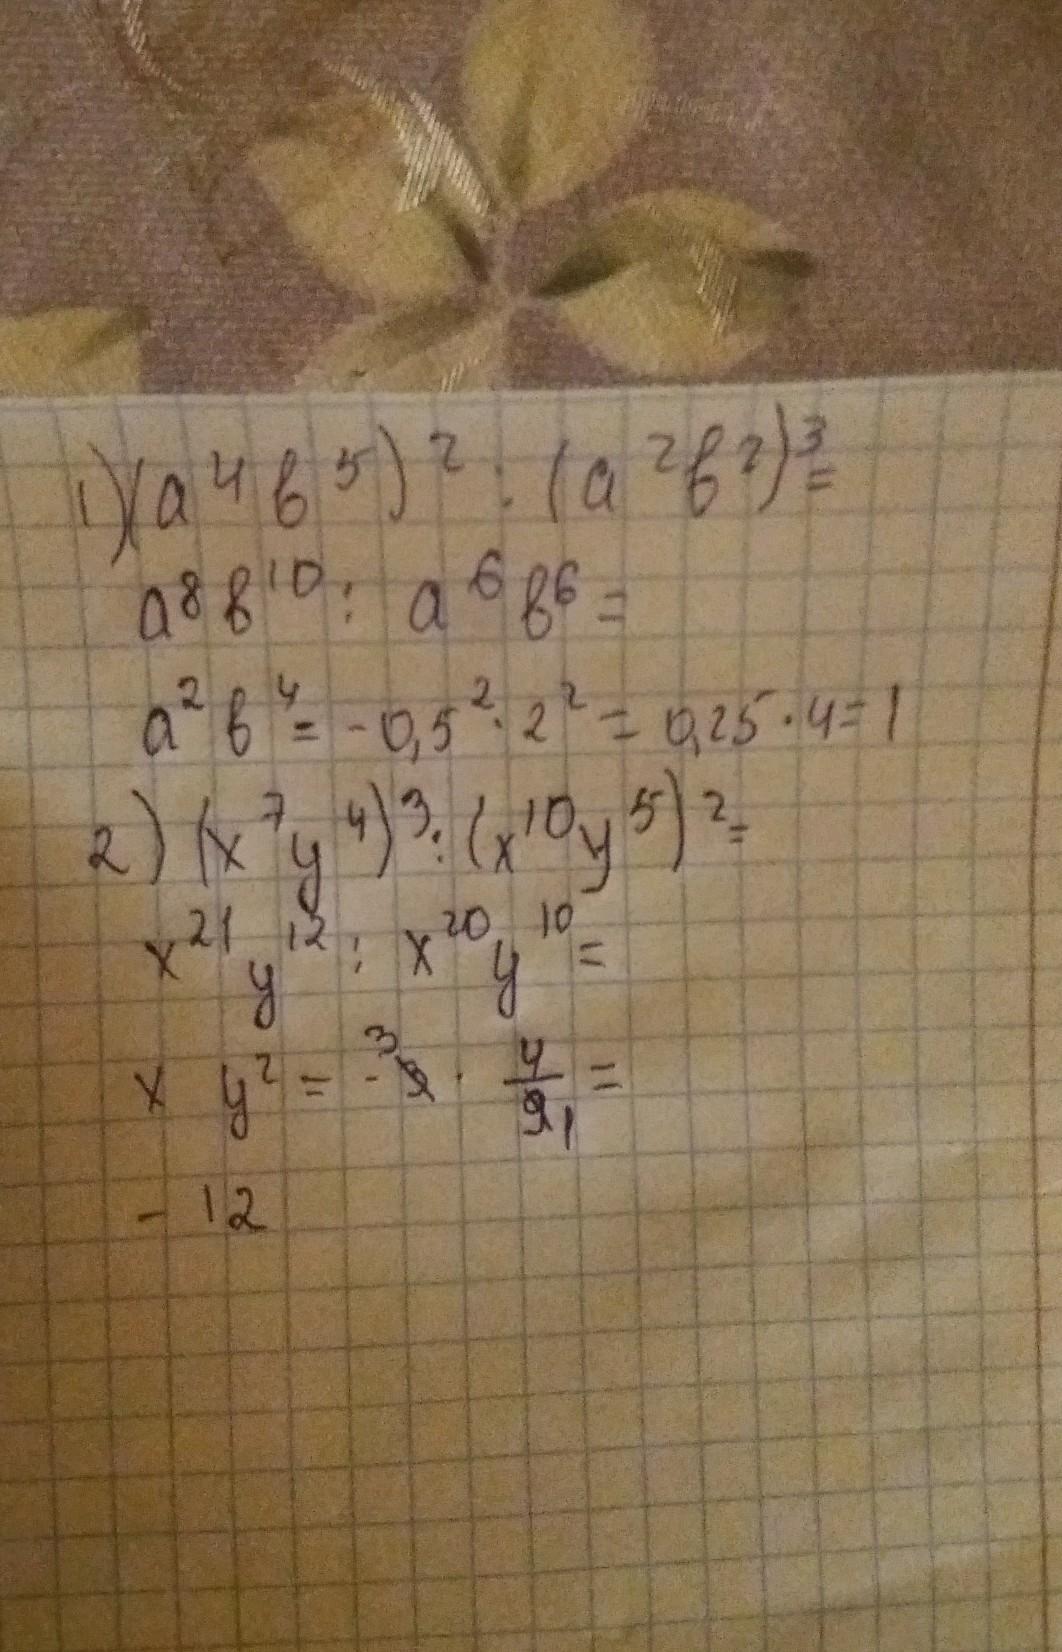 1) (a⁴b⁵)² : (a²b²)³ =
a⁸b¹⁰ : a⁶b⁶ =
a²b⁴ = -0,5² · 2² = 0,25 · 4 = 1
2) (x⁷y⁴)³ : (x¹⁰y⁵)² =
x²¹y¹² : x²⁰y¹⁰ =
x y² = -³9 · 4/9₁ =
- 12